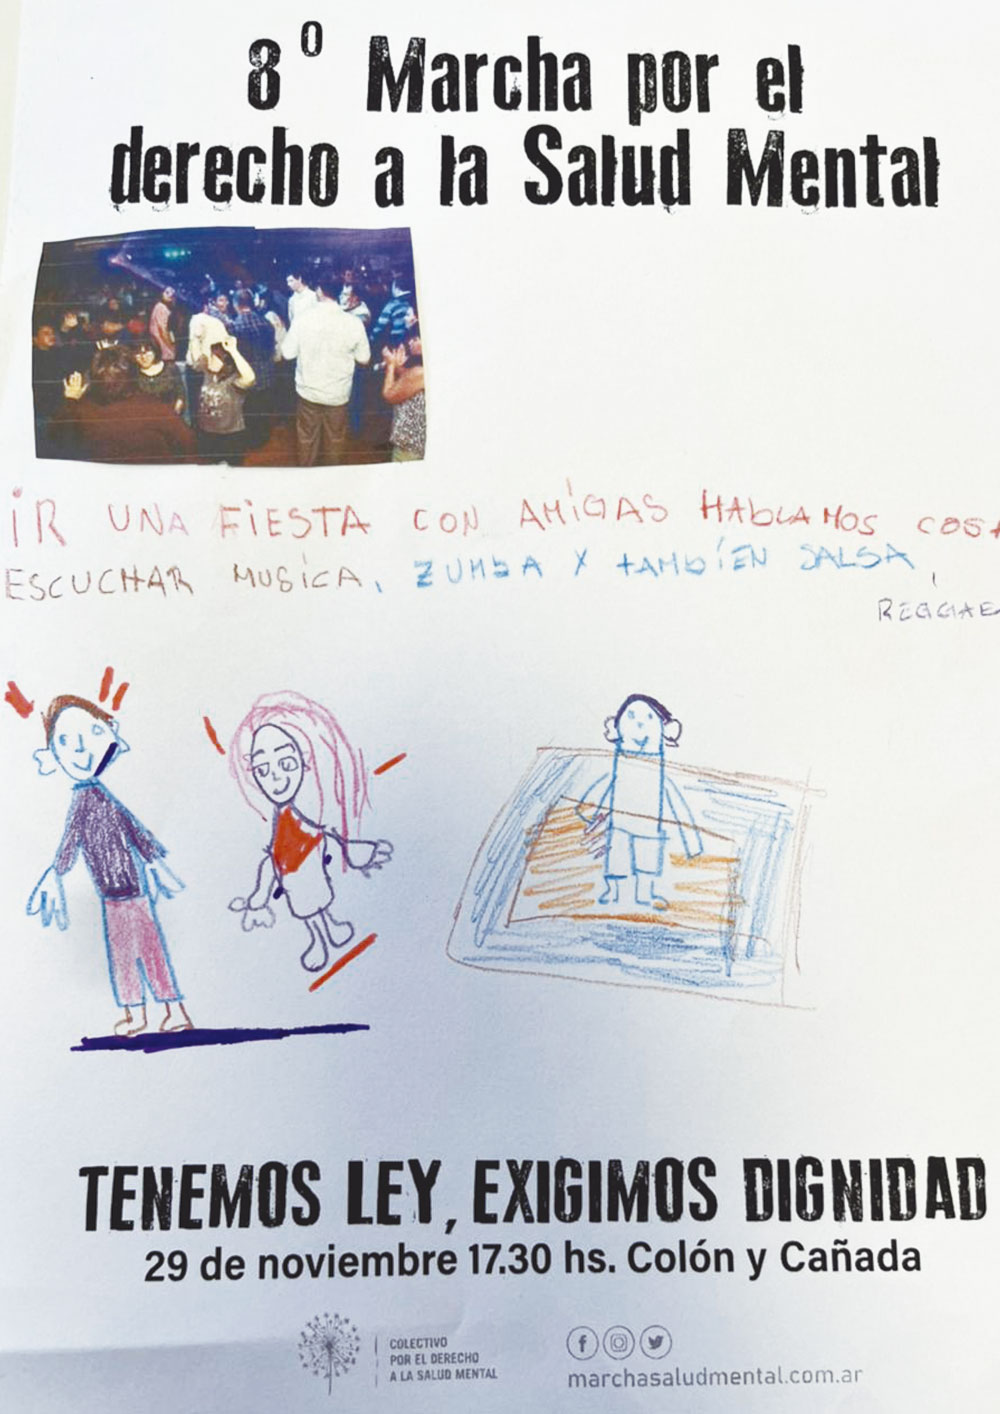 8° Marcha por el
derecho a la Salud Mental
iR UNA FiESTA CON AMiGAS HABLAMOS COSA
ESCUCHAR MUSiCA, ZUMBA Y tAMbiÉN SALSA,
REGGAE
TENEMOS LEY, EXIGIMOS DIGNIDAD
29 de noviembre 17.30 hs. Colón y Cañada
COLECTIVO
POR EL DERECHO
A LA SALUD MENTAL
marchasaludmental.com.ar